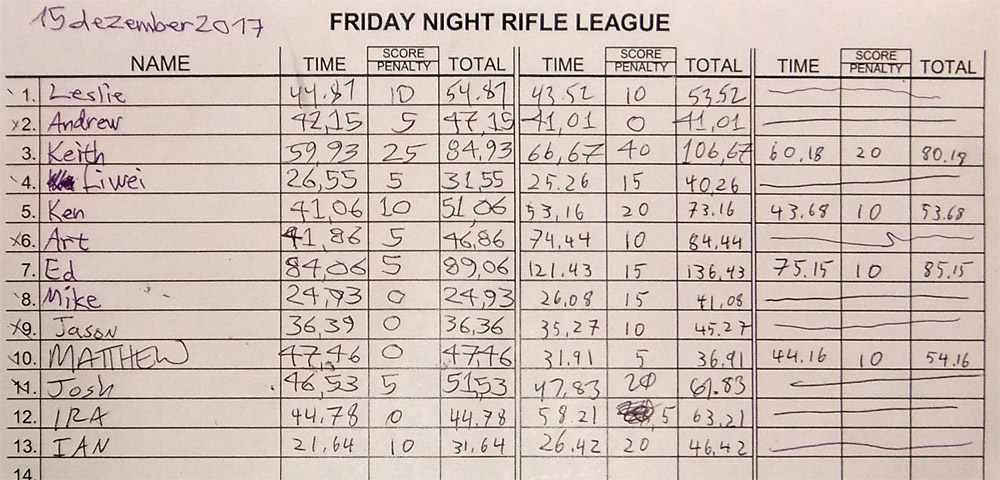 15 dezember 2017
FRIDAY NIGHT RIFLE LEAGUE
NAME TIME SCORE PENALTY TOTAL TIME SCORE PENALTY TOTAL TIME SCORE PENALTY TOTAL
1. Leslie 44.87 10 54.87 43.52 10 53.52
x2. Andrew 42,15 5 47,15 41,01 0 41,01
3. Keith 59,93 25 84,93 66,67 40 106,67 60.18 20 80.19
4. Liwei 26,55 5 31,55 25.26 15 40,26
5. Ken 41,06 10 51,06 53,16 20 73.16 43.68 10 53.68
x6. Art 41,86 5 46,86 74,44 10 84,44
7. Ed 84,06 5 89,06 121.43 15 136.43 75.15 10 85.15
8. Mike 24,93 0 24,93 26.08 15 41.08
x9. Jason 36,39 0 36,36 35.27 10 45.27
10. MATTHEW 47,46 0 47,46 31.91 5 36.91 44.16 10 54.16
11. Josh 46,53 5 51,53 47,83 20 67.83
12. IRA 44.78 0 44.78 58.21 5 63.21
13. IAN 21,64 10 31,64 26.42 20 46,42
14.